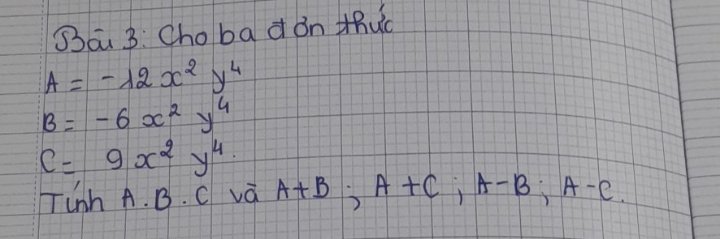 Bài 3: Cho ba đơn thức
A = -12x² y⁴
B = -6x² y⁴
C = 9x² y⁴.
Tính A.B.C và A+B; A+C; A-B; A-C.